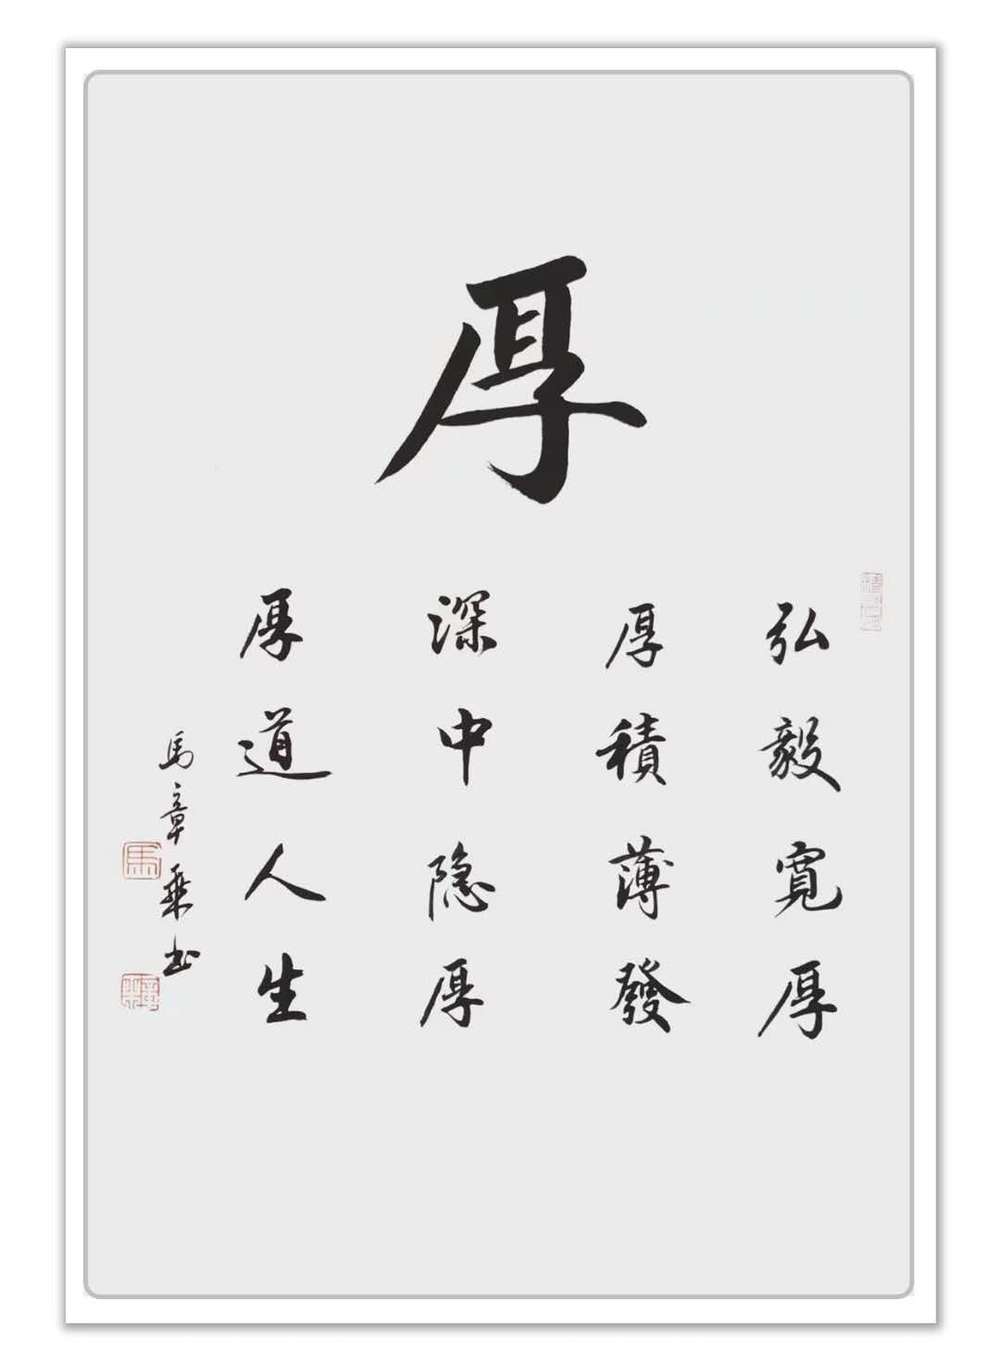 厚
弘毅寛厚
厚積薄發
深中隐厚
厚道人生
馬章乘书
馬